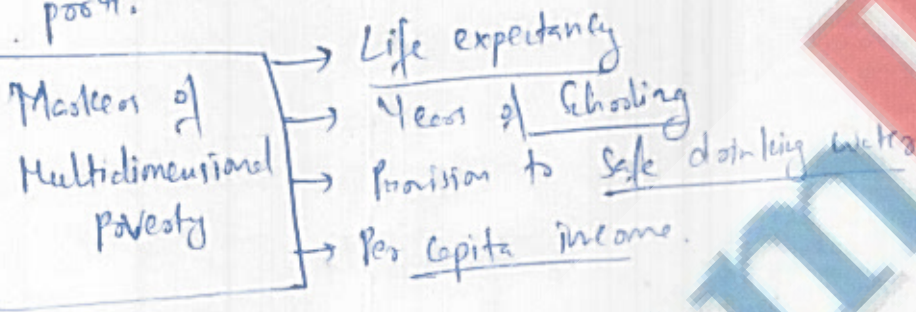 poor.
Markers of
Multidimensional
Poverty
Life expectancy
Years of Schooling
Provision to safe drinking water
Per capita income.